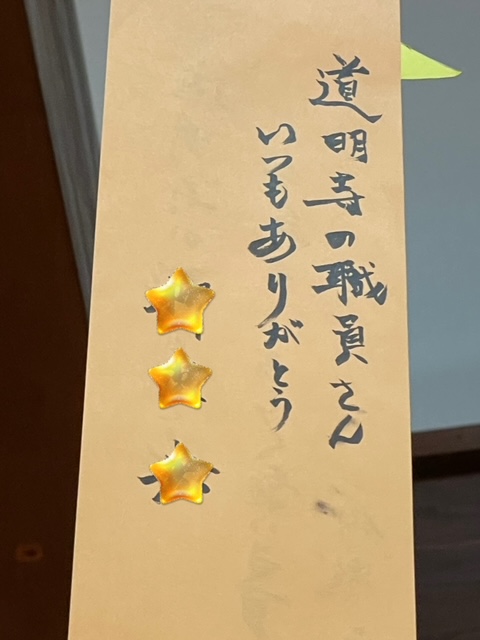 道明寺の職員さん
いつもありがとう